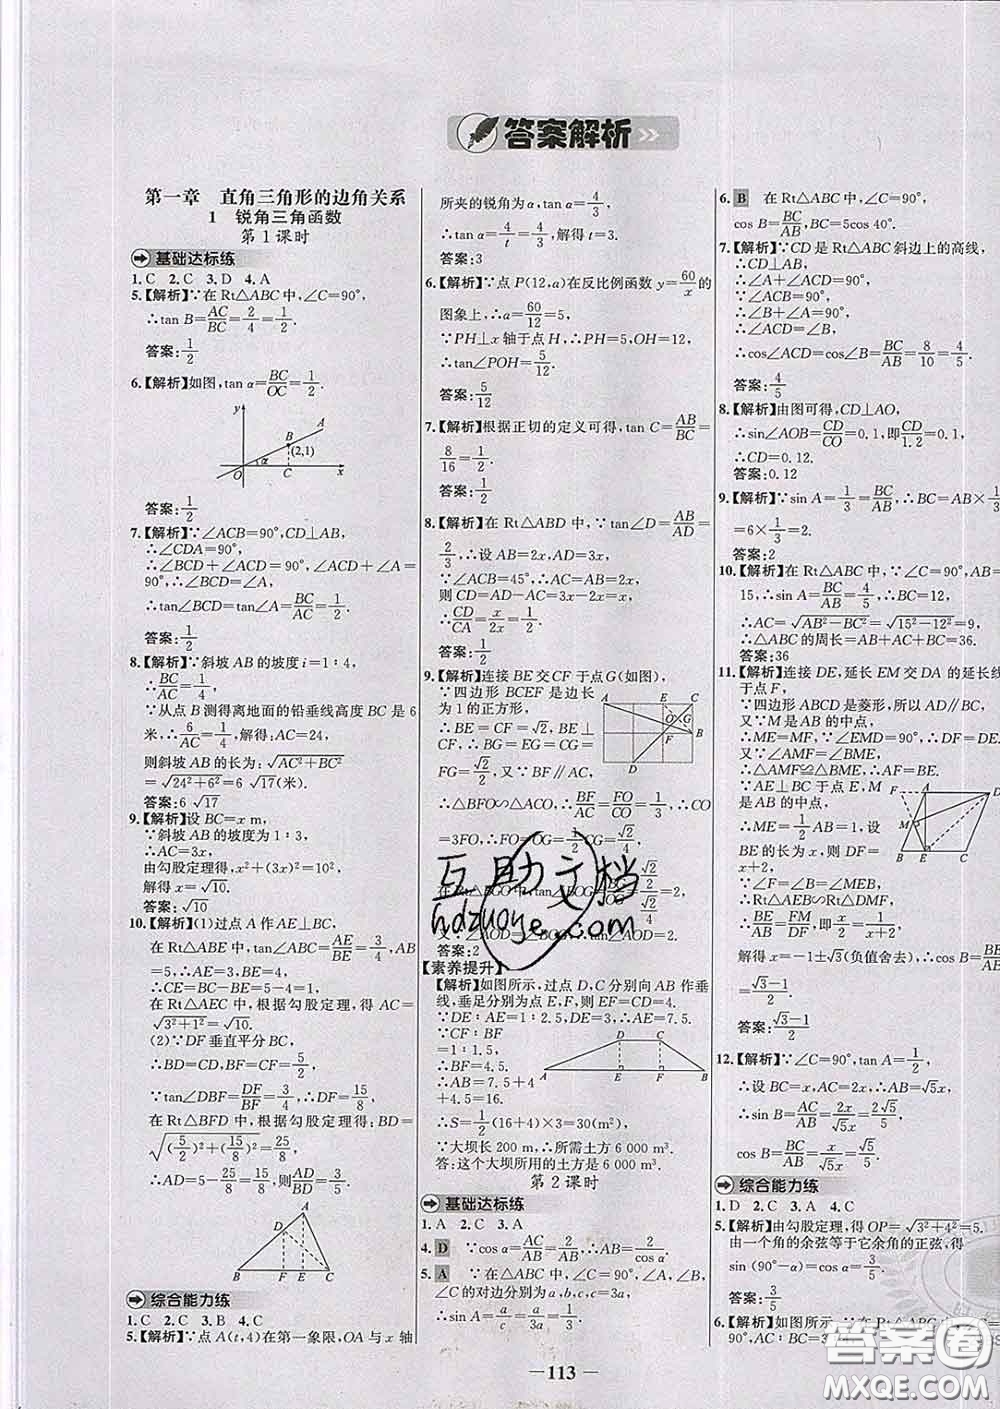 答案解析
第一章 直角三角形的边角关系
1 锐角三角函数
第1课时
基础达标练
1.C 2.C 3.D 4.A
5.【解析】∵在Rt△ABC中,∠C=90°,
∴tan B=AC/BC=2/4=1/2.
答案:1/2
6.【解析】如图,tan α=BC/OC=1/2.
y
A
B
(2,1)
α
O C x
答案:1/2
7.【解析】∵∠ACB=90°,CD⊥AB,
∴∠CDA=90°,
∴∠BCD+∠ACD=90°,∠ACD+∠A=
90°,∴∠BCD=∠A,
∴tan∠BCD=tan∠A=BC/AC=1/2.
答案:1/2
8.【解析】∵斜坡AB的坡度i=1∶4,
∴BC/AC=1/4,
∵从点B测得离地面的铅垂线高度BC是6
米,∴6/AC=1/4,解得:AC=24,
则斜坡AB的长为:√(AC²+BC²)
=√(24²+6²)=6√17(米).
答案:6√17
9.【解析】设BC=x m,
∵斜坡AB的坡度为1∶3,
∴AC=3x,
由勾股定理得,x²+(3x)²=10²,
解得x=√10.
答案:√10
10.【解析】(1)过点A作AE⊥BC,
在Rt△ABE中,tan∠ABC=AE/BE=3/4,AB
=5,∴AE=3,BE=4,
∴CE=BC-BE=5-4=1,
在Rt△AEC中,根据勾股定理,得AC=
√(3²+1²)=√10.
(2)∵DF垂直平分BC,
∴BD=CD,BF=CF=5/2,
∵tan∠DBF=DF/BF=3/4,∴DF=15/8,
在Rt△BFD中,根据勾股定理,得BD=
√((5/2)²+(15/8)²)=25/8,
∴AD=5-25/8=15/8,则AD/BD=3/5.
A
D
B F E C
综合能力练
1.C 2.C 3.B 4.C
5.【解析】∵点A(t,4)在第一象限,OA与x轴
所夹的锐角为α,tan α=4/3,
∴tan α=4/t=4/3,解得t=3.
答案:3
6.【解析】∵点P(12,a)在反比例函数y=60/x的
图象上,∴a=60/12=5,
∵PH⊥x轴于点H,∴PH=5,OH=12,
∴tan∠POH=5/12.
答案:5/12
7.【解析】根据正切的定义可得,tan C=AB/BC=
8/16=1/2.
答案:1/2
8.【解析】在Rt△ABD中,∵tan∠D=AB/AD=
2/3,∴设AB=2x,AD=3x,
∵∠ACB=45°,∴AC=AB=2x,
则CD=AD-AC=3x-2x=x,
∴CD/CA=x/2x=1/2.
答案:1/2
9.【解析】连接BE交CF于点G(如图),
∵四边形BCEF是边长
为1的正方形,
∴BE=CF=√2,BE⊥CF,
A E C
O G
F B
D
∴BG=EG=CG=
FG=√2/2,又∵BF∥AC,
∴△BFO∽△ACO,∴BF/AC=FO/CO=1/3,∴CO
=3FO,∴FO=OG=1/2CG=√2/4,
答案:2
【素养提升】
【解析】如图所示,过点D,C分别向AB作垂
线,垂足分别为点E,F,则EF=CD=4.
∵DE∶AE=1∶2.5,DE=3,∴AE=7.5.
∵CF∶BF
=1∶1.5,
∴BF=4.5.
∴AB=7.5+4
+4.5=16.
D C
A E F B
∴S=1/2(16+4)×3=30(m²),
∵大坝长200 m,∴所需土方6 000 m³.
答:这个大坝所用的土方是6 000 m³.
第2课时
基础达标练
1.A 2.C 3.A
4. D ∵cos α=AC/AB=2/AB,∴AB=2/cos α.
5. A ∵在△ABC中,∠C=90°,∠A,∠B,∠C
的对边分别为a,b,c,c=3a,
∴sin A=a/c=a/3a=1/3.
6. B 在Rt△ABC中,∠C=90°,
cos B=BC/AB,BC=5cos 40°.
7.【解析】∵CD是Rt△ABC斜边上的高线,
∴CD⊥AB,
∴∠A+∠ACD=90°,
∵∠B+∠A=90°,
∴∠ACD=∠B,
∴cos∠ACD=cos∠B=BC/AB=8/10=4/5.
答案:4/5
8.【解析】由图可得,CD⊥AO,
∴sin∠AOB=CD/CO=0.1,即CD/1.2=0.1,
∴CD=0.12.
答案:0.12
9.【解析】∵sin A=1/3=BC/AB,∴BC=AB×1/3
=6×1/3=2.
答案:2
10.【解析】在Rt△ABC中,∠C=90°,AB=
15,∴sin A=BC/AB=4/5,∴BC=12,
∴AC=√(AB²-BC²)=√(15²-12²)=9,
∴△ABC的周长=AC+AB+BC=36.
答案:36
11.【解析】连接DE,延长EM交DA的延长线
于点F,
∵四边形ABCD是菱形,所以AD∥BC,
又∵M是AB的中点,
∴ME=MF,∵∠EMD=90°,∴DF=DE,
又∵∠AMF=∠BME,
∴△AMF≌△BME,∴AF=BE.
∵AE⊥BC于点E,M
是AB的中点,
∴ME=1/2AB=1,设
BE的长为x,则DF=
F A D
M
B E C
x+2=DE,
∵∠B=∠MEB=∠F,
∴Rt△AEB∽Rt△DMF,
∴BE/FM=AB/DF,∴x/1=2/(x+2),
解得x=-1±√3(负值舍去),∴cos B=
(√3-1)/2.
答案:(√3-1)/2
12.【解析】∵∠C=90°,tan A=1/2,
∴设BC=x,AC=2x,∴AB=√5x,
∴sin B=AC/AB=2x/√5x=2√5/5,
cos B=BC/AB=x/√5x=√5/5.
综合能力练
1.D 2.C 3.C 4.C
5.【解析】由勾股定理,得OP=√(3²+4²)=5.
由一个角的余弦等于它余角的正弦,得
sin (90°-α)=cos α=3/5.
答案:3/5
6.【解析】如图所示,∵在Rt△ABC
90°,AC∶BC=3
互助文档
hdzuoye.com
答案圈
MXQE.COM
— 113 —